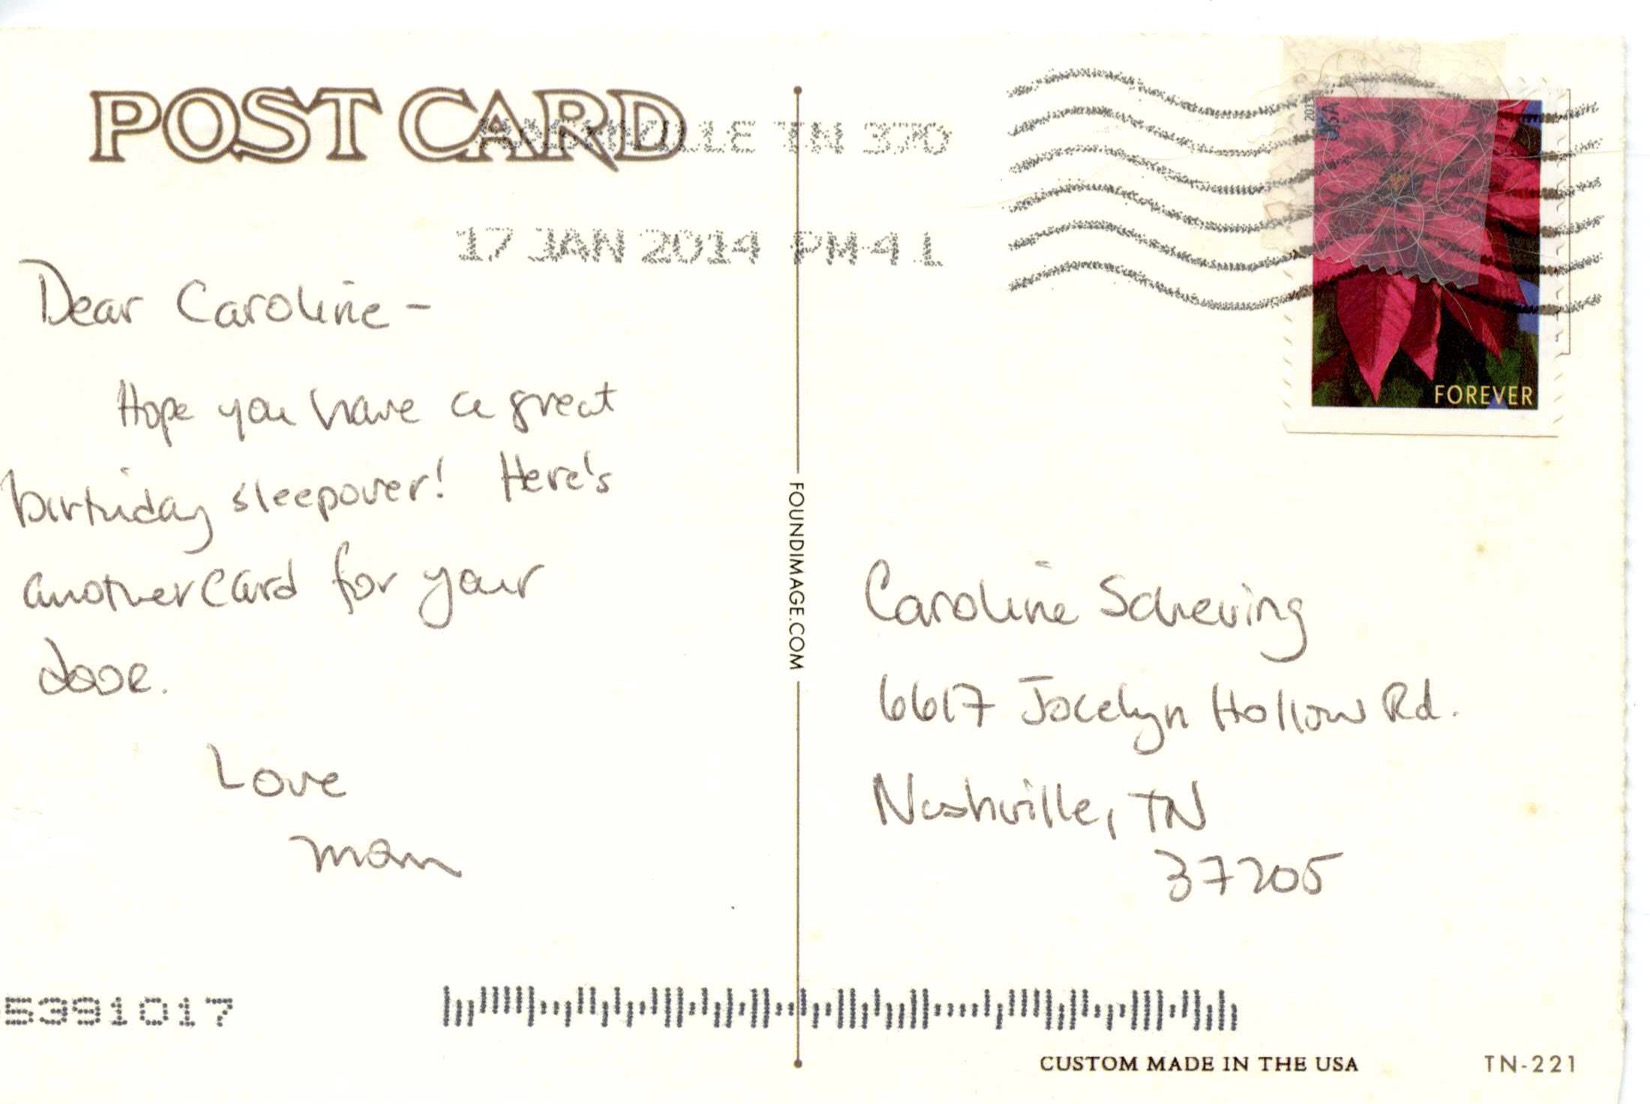 POST CARD
NASHVILLE TN 370
17 JAN 2014 PM 4 L
USA
FOREVER
Dear Caroline -
Hope you have a great
birthday sleepover! Here's
another card for your
door.
Love
mom
FOUNDIMAGE.COM
Caroline Scheving
6617 Jocelyn Hollow Rd.
Nashville, TN
37205
5391017
CUSTOM MADE IN THE USA
TN-221